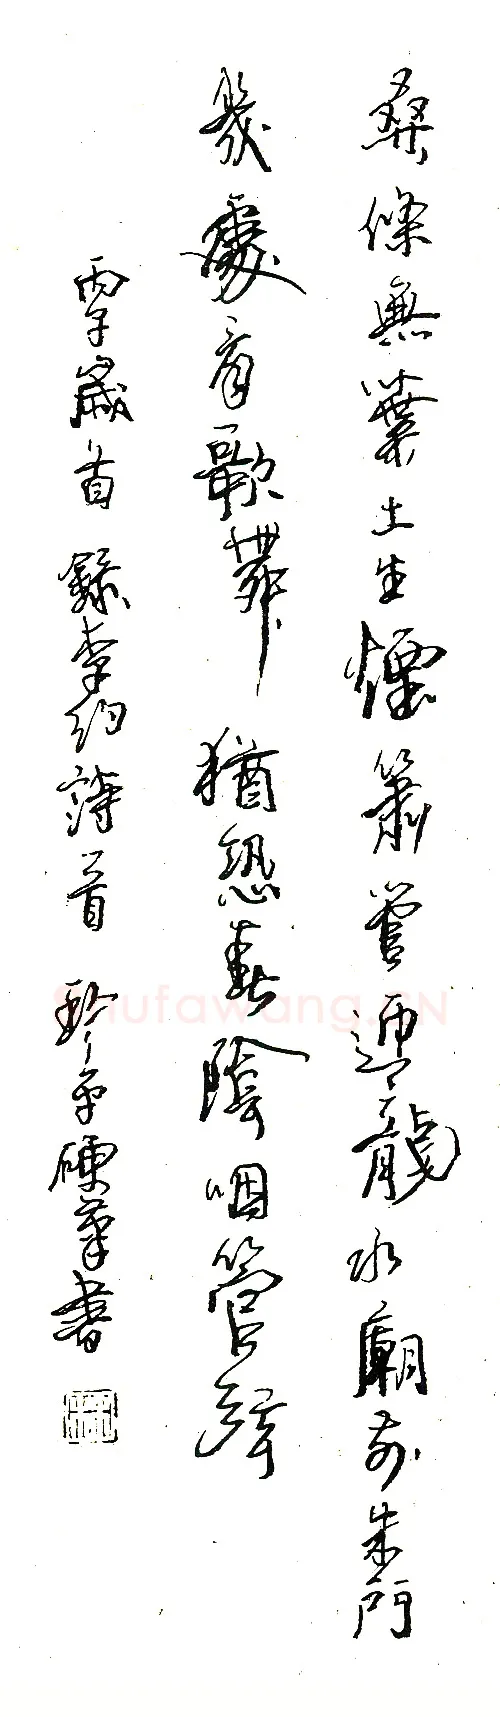 桑條無葉土生煙簫管迎龍水廟前朱門
幾處看歌舞猶恐春陰咽管絃
丙子歲首錄李約詩一首 平硬筆書
Shufawang.CN